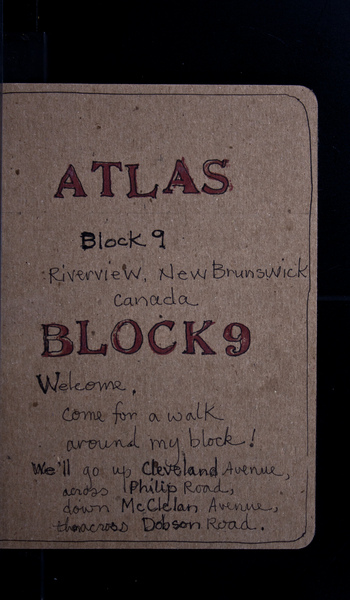 ATLAS
Block 9
Riverview, New Brunswick
Canada
BLOCK 9
Welcome,
come for a walk
around my block!
We'll go up Cleveland Avenue,
across Philip Road,
down McClelan Avenue,
then across Dobson Road.